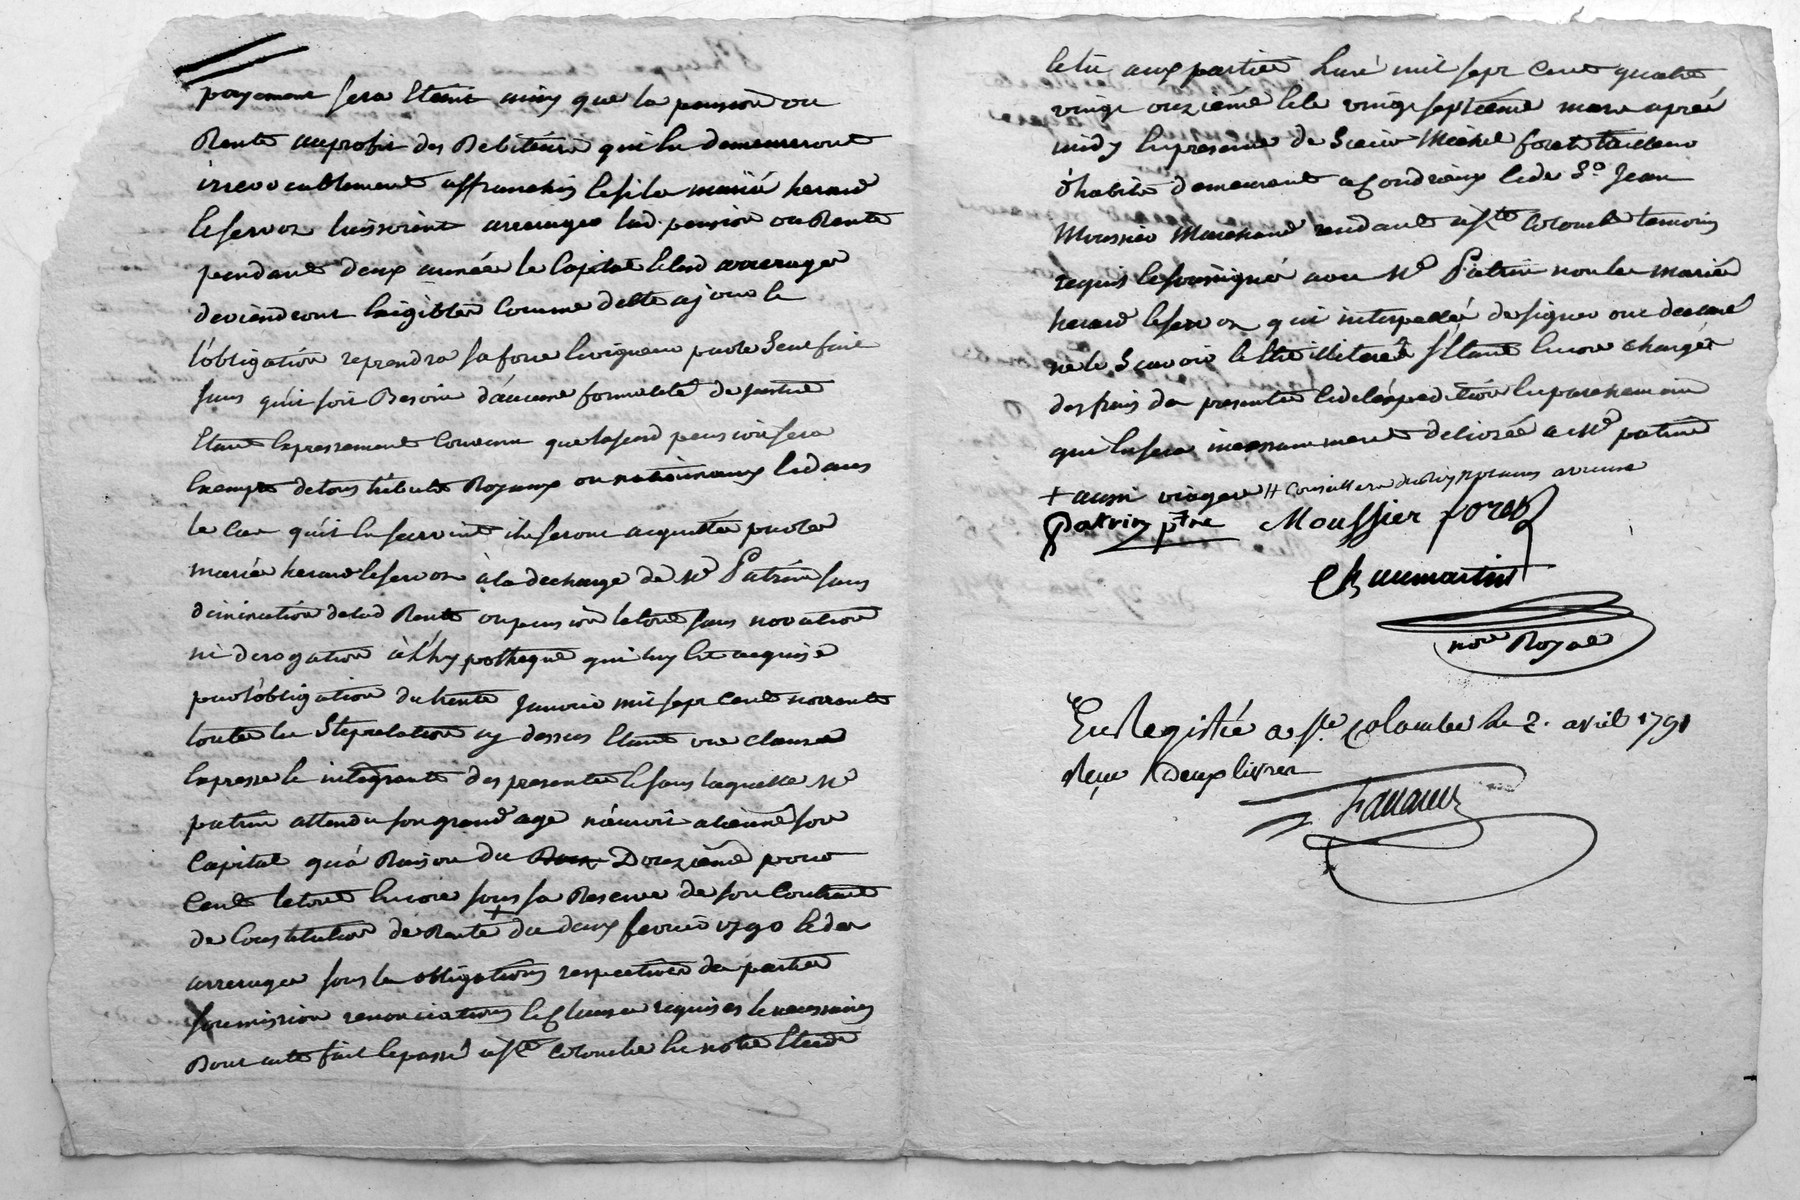 payement sera Eteint ainsy que la pension ou
Rente auprofit des Debiteurs qui En demeureront
irrevocablement affranchis Et si la mariés herard
Et servoz laissoient arrerager lad. pension ou Rente
pendant deux année le Capital Et lesd arrerages
deviendront Exigibles Comme dette a jour Et
l'obligation reprendra sa force Et vigueur par le Seul fait
Sans qu'il soit Besoin d'aucune formalité de justice
Etant Expressement Convenu que lasusd pension sera
Exempte de tous tributs Royaux ou nationnaux Et dans
le Cas qu'il En survint ils seront acquittés par les
mariés herard Et servoz à la decharge de Mr Patrin sans
diminution de lad Rente ou pension Et le tout sans novation
ni derogation à l'hypotheque qui luy Est acquise
par l'obligation du trente Janvier mil sept Cent nonante
toutes les Stipulations cy dessus Etant une clause
Expresse Et integrante des presentes Et sans laquelle Mr
patrin attendu son grand age n'auroit aliéné son
Capital qu'à Raison du Douzième pour
Cent Et le tout Encore sous la Reserve de son Contrat
de Constitution de Rente + du deux fevrier 1790 Et des
arrerages sous les obligations respectives des parties
soumission renonciations Et Clauses requises Et necessaires
Dont acte fait Et passé à Ste Colombe En notre Etude
Et lu aux parties L'an mil sept Cent quatre
vingt onzième Et le vingt septième mars après
midy En presence de Sieur Michel foret tailleur
d'habits demeurant a Condrieux Et de Sr Jean
Moussier Marchand rendant à Ste Colombe temoins
requis Et soussignés avec Mr Patrin non les mariés
herard Et servoz qui interpellés de signer ont declaré
ne le Scavoir Et Etre illiterés s'Etant Encore chargés
des frais des presentes Et de l'expedition En parchemin
qui En sera incessamment delivrée a Mr patrin
+ aussi viagere // Conseillers du Roy Notaires
Patrin ptre Moussier foret
Chaumartin
nore Royal
Enregistré a Ste Colombe le 2. avril 1791
Reçu deux livres